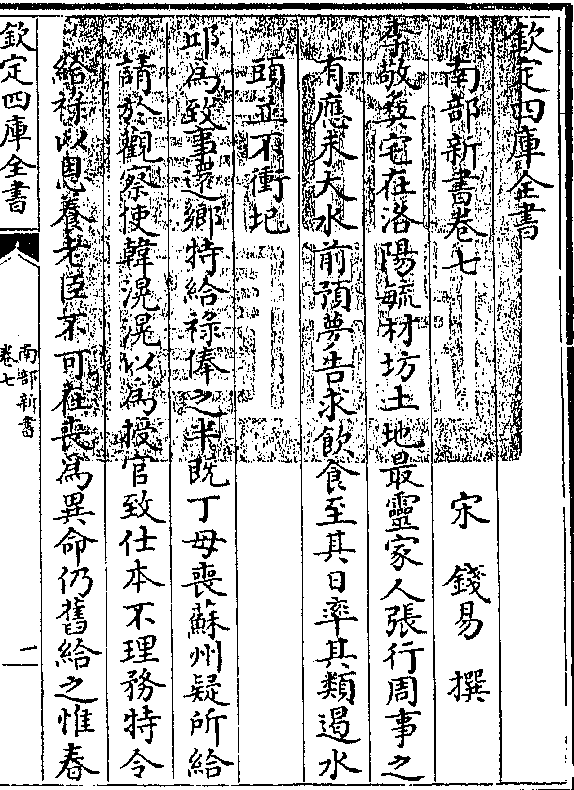 欽定四庫全書
南部新書卷七
宋 錢易 撰
李敬彛宅在洛陽毓材坊土地最靈家人張行周事之
有應未大水前預夢告求飲食至其日率其類遏水
頭並不衝圯
邱為致事還鄉特給祿俸之半既丁母喪蘇州疑所給
請於觀察使韓滉滉以為授官致仕本不理務特令
給祿以恩養老臣不可在喪為異命仍舊給之惟春
欽定四庫全書
南部新書
卷七
一